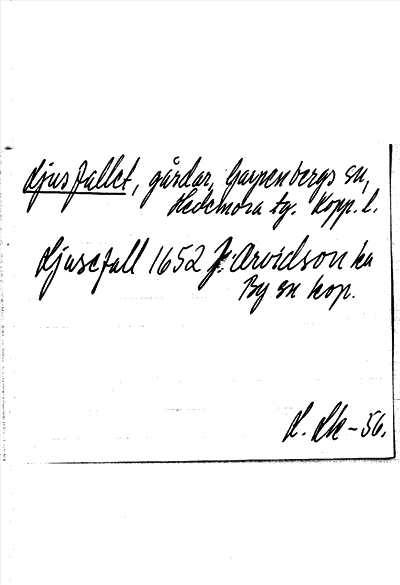 Ljusfallet, gårdar, Garpenbergs sn,
Hedemora tg. Kopp. l.
Ljusefall 1652 J. Arvidson ka
By sn kop.
L. Lk - 56.